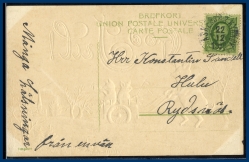 BREFKORT
UNION POSTALE UNIVERSELLE
CARTE POSTALE
22
12
Herr Konstantin
Hulu
Rydsnäs
Många hälsningar
från